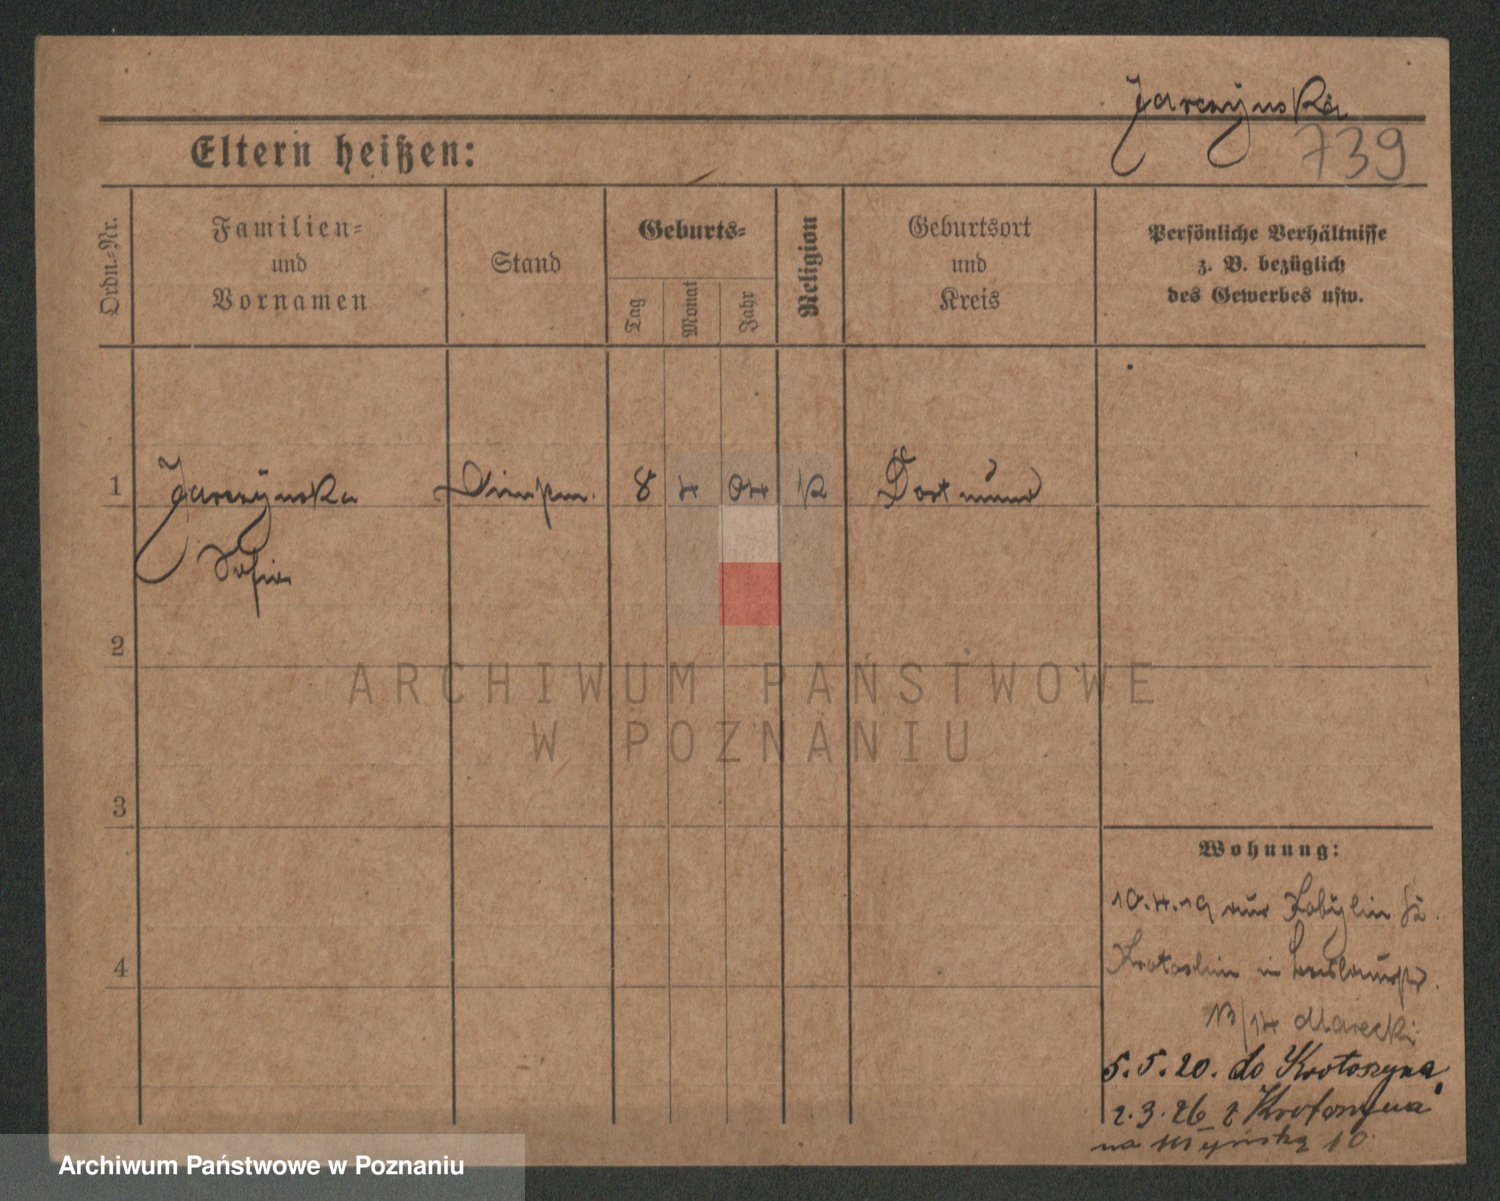 Jarczÿnska
739
Eltern heißen:
Ordn.-Nr.
Familien-
und
Vornamen
Stand
Geburts-
Tag
Monat
Jahr
Religion
Geburtsort
und
Kreis
Persönliche Verhältnisse
z. B. bezüglich
des Gewerbes usw.
1 Jarczÿnska 8 4 04 K Dortmund
Sofie
2
3
4
ARCHIWUM PAŃSTWOWE
W POZNANIU
Wohnung:
10.4.19 aus Kobylin
Krotoschin in
13/14 Marecki
5.5.20. do Krotoszyna
2.3.26 z Krotoszyna
na Młyńską 10.
Archiwum Państwowe w Poznaniu